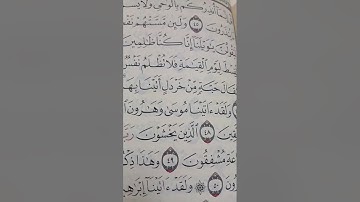 أُنذِرُكُم بِٱلْوَحْىِ وَلَا يَسْ
ذَرُونَ ٤٥ وَلَئِن مَّسَّتْهُمْ نَفْ
ولُنَّ يَٰوَيْلَنَآ إِنَّا كُنَّا ظَٰلِمِينَ
سْطَ لِيَوْمِ ٱلْقِيَٰمَةِ فَلَا تُظْلَمُ نَفْسٌ
قَالَ حَبَّةٍ مِّنْ خَرْدَلٍ أَتَيْنَا بِهَا
وَلَقَدْ ءَاتَيْنَا مُوسَىٰ وَهَٰرُونَ ٱلْ
قِينَ ٤٨ ٱلَّذِينَ يَخْشَوْنَ رَبَّ
اعَةِ مُشْفِقُونَ ٤٩ وَهَٰذَا ذِكْ
رُونَ ٥٠ ۞ وَلَقَدْ ءَاتَيْنَآ إِبْرَٰهِ